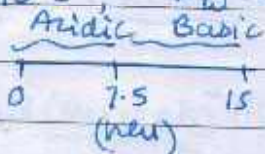 Acidic Basic
0 7.5 15
(neu)